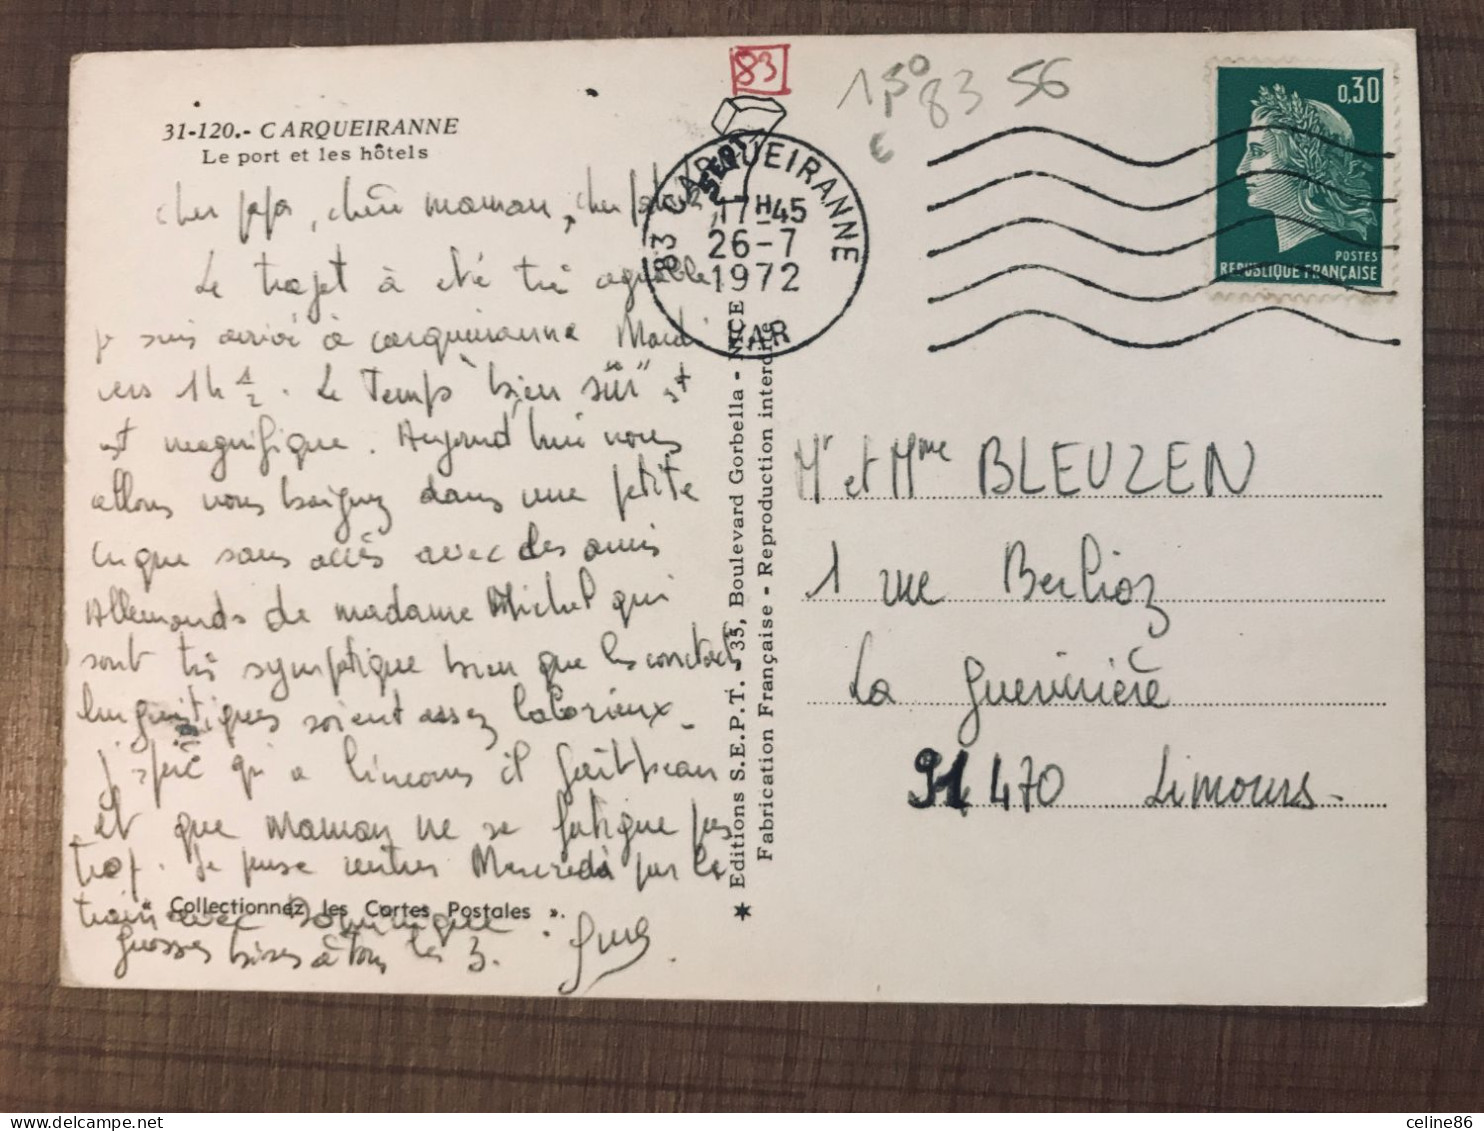 83
1,50 83 56
€
31-120.- CARQUEIRANNE
Le port et les hôtels
83 CARQUEIRANNE
17H45
26-7
1972
VAR
0,30
POSTES
REPUBLIQUE FRANÇAISE
cher papa, chère maman, cher
Le trajet à été très agréable,
je suis arrivé à carqueiranne Mardi
vers 1h 1/2. Le Temps "bien sûr" est
est magnifique. Aujourd'hui nous
allons nous baigner dans une petite
crique sans accès avec des amis
Allemands de madame Michel qui
sont très sympatique bien que les contacts
linguistiques soient assez laborieux.
j'espère qu'a Limours il fait beau
et que Maman ne se fatigue pas
trop. Je pense rentrer Mercredi par le
train avec Dominique.
Grosses bises à tous les 3.
« Collectionnez les Cartes Postales ».
Editions S.E.P.T. - 35, Boulevard Gorbella - NICE
Fabrication Française - Reproduction interdite
Mr et Mme BLEUZEN
1 rue Berlioz
La Guerinière
91 470 Limours.
celine86